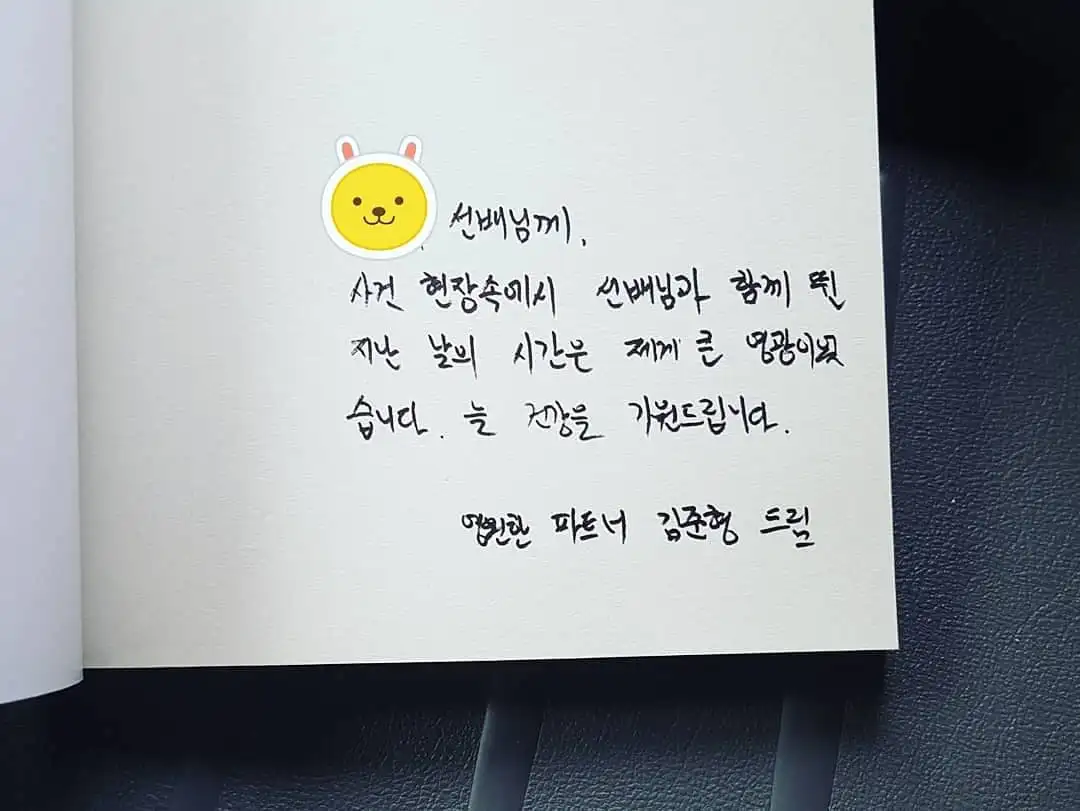 선배님께,
사건 현장속에서 선배님과 함께 뛴
지난 날의 시간은 제게 큰 영광이었
습니다. 늘 건강을 기원드립니다.
영원한 파트너 김준형 드림